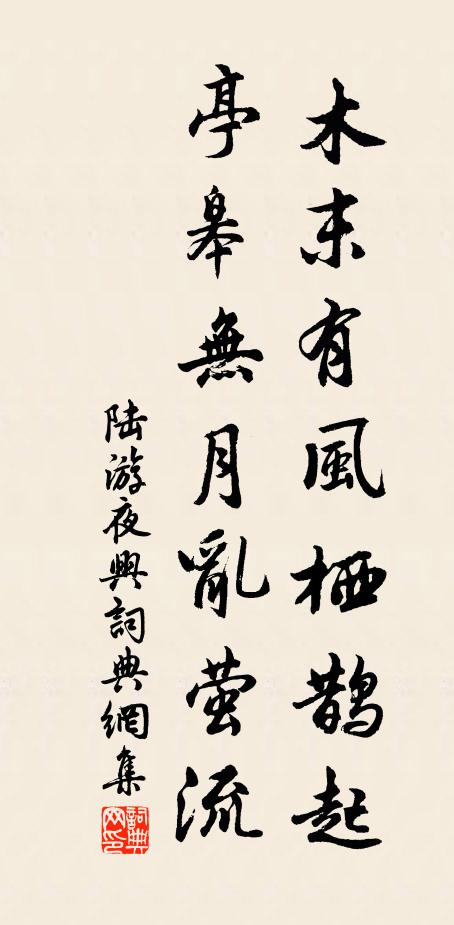 木末有風栖鵲起
亭皋無月亂萤流
陆游夜興詞典網集
詞典网印